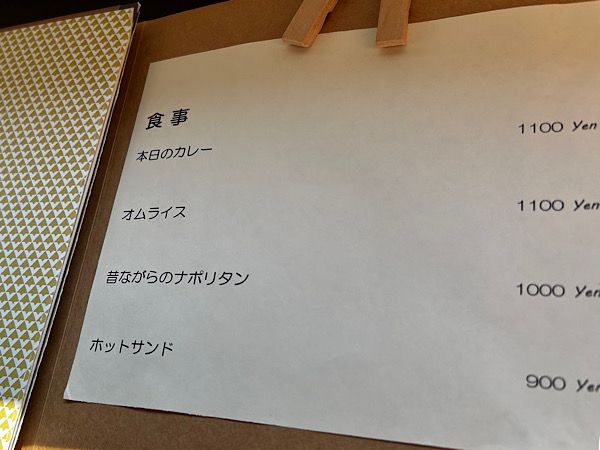 食事
本日のカレー 1100 Yen
オムライス 1100 Yen
昔ながらのナポリタン 1000 Yen
ホットサンド 900 Yen